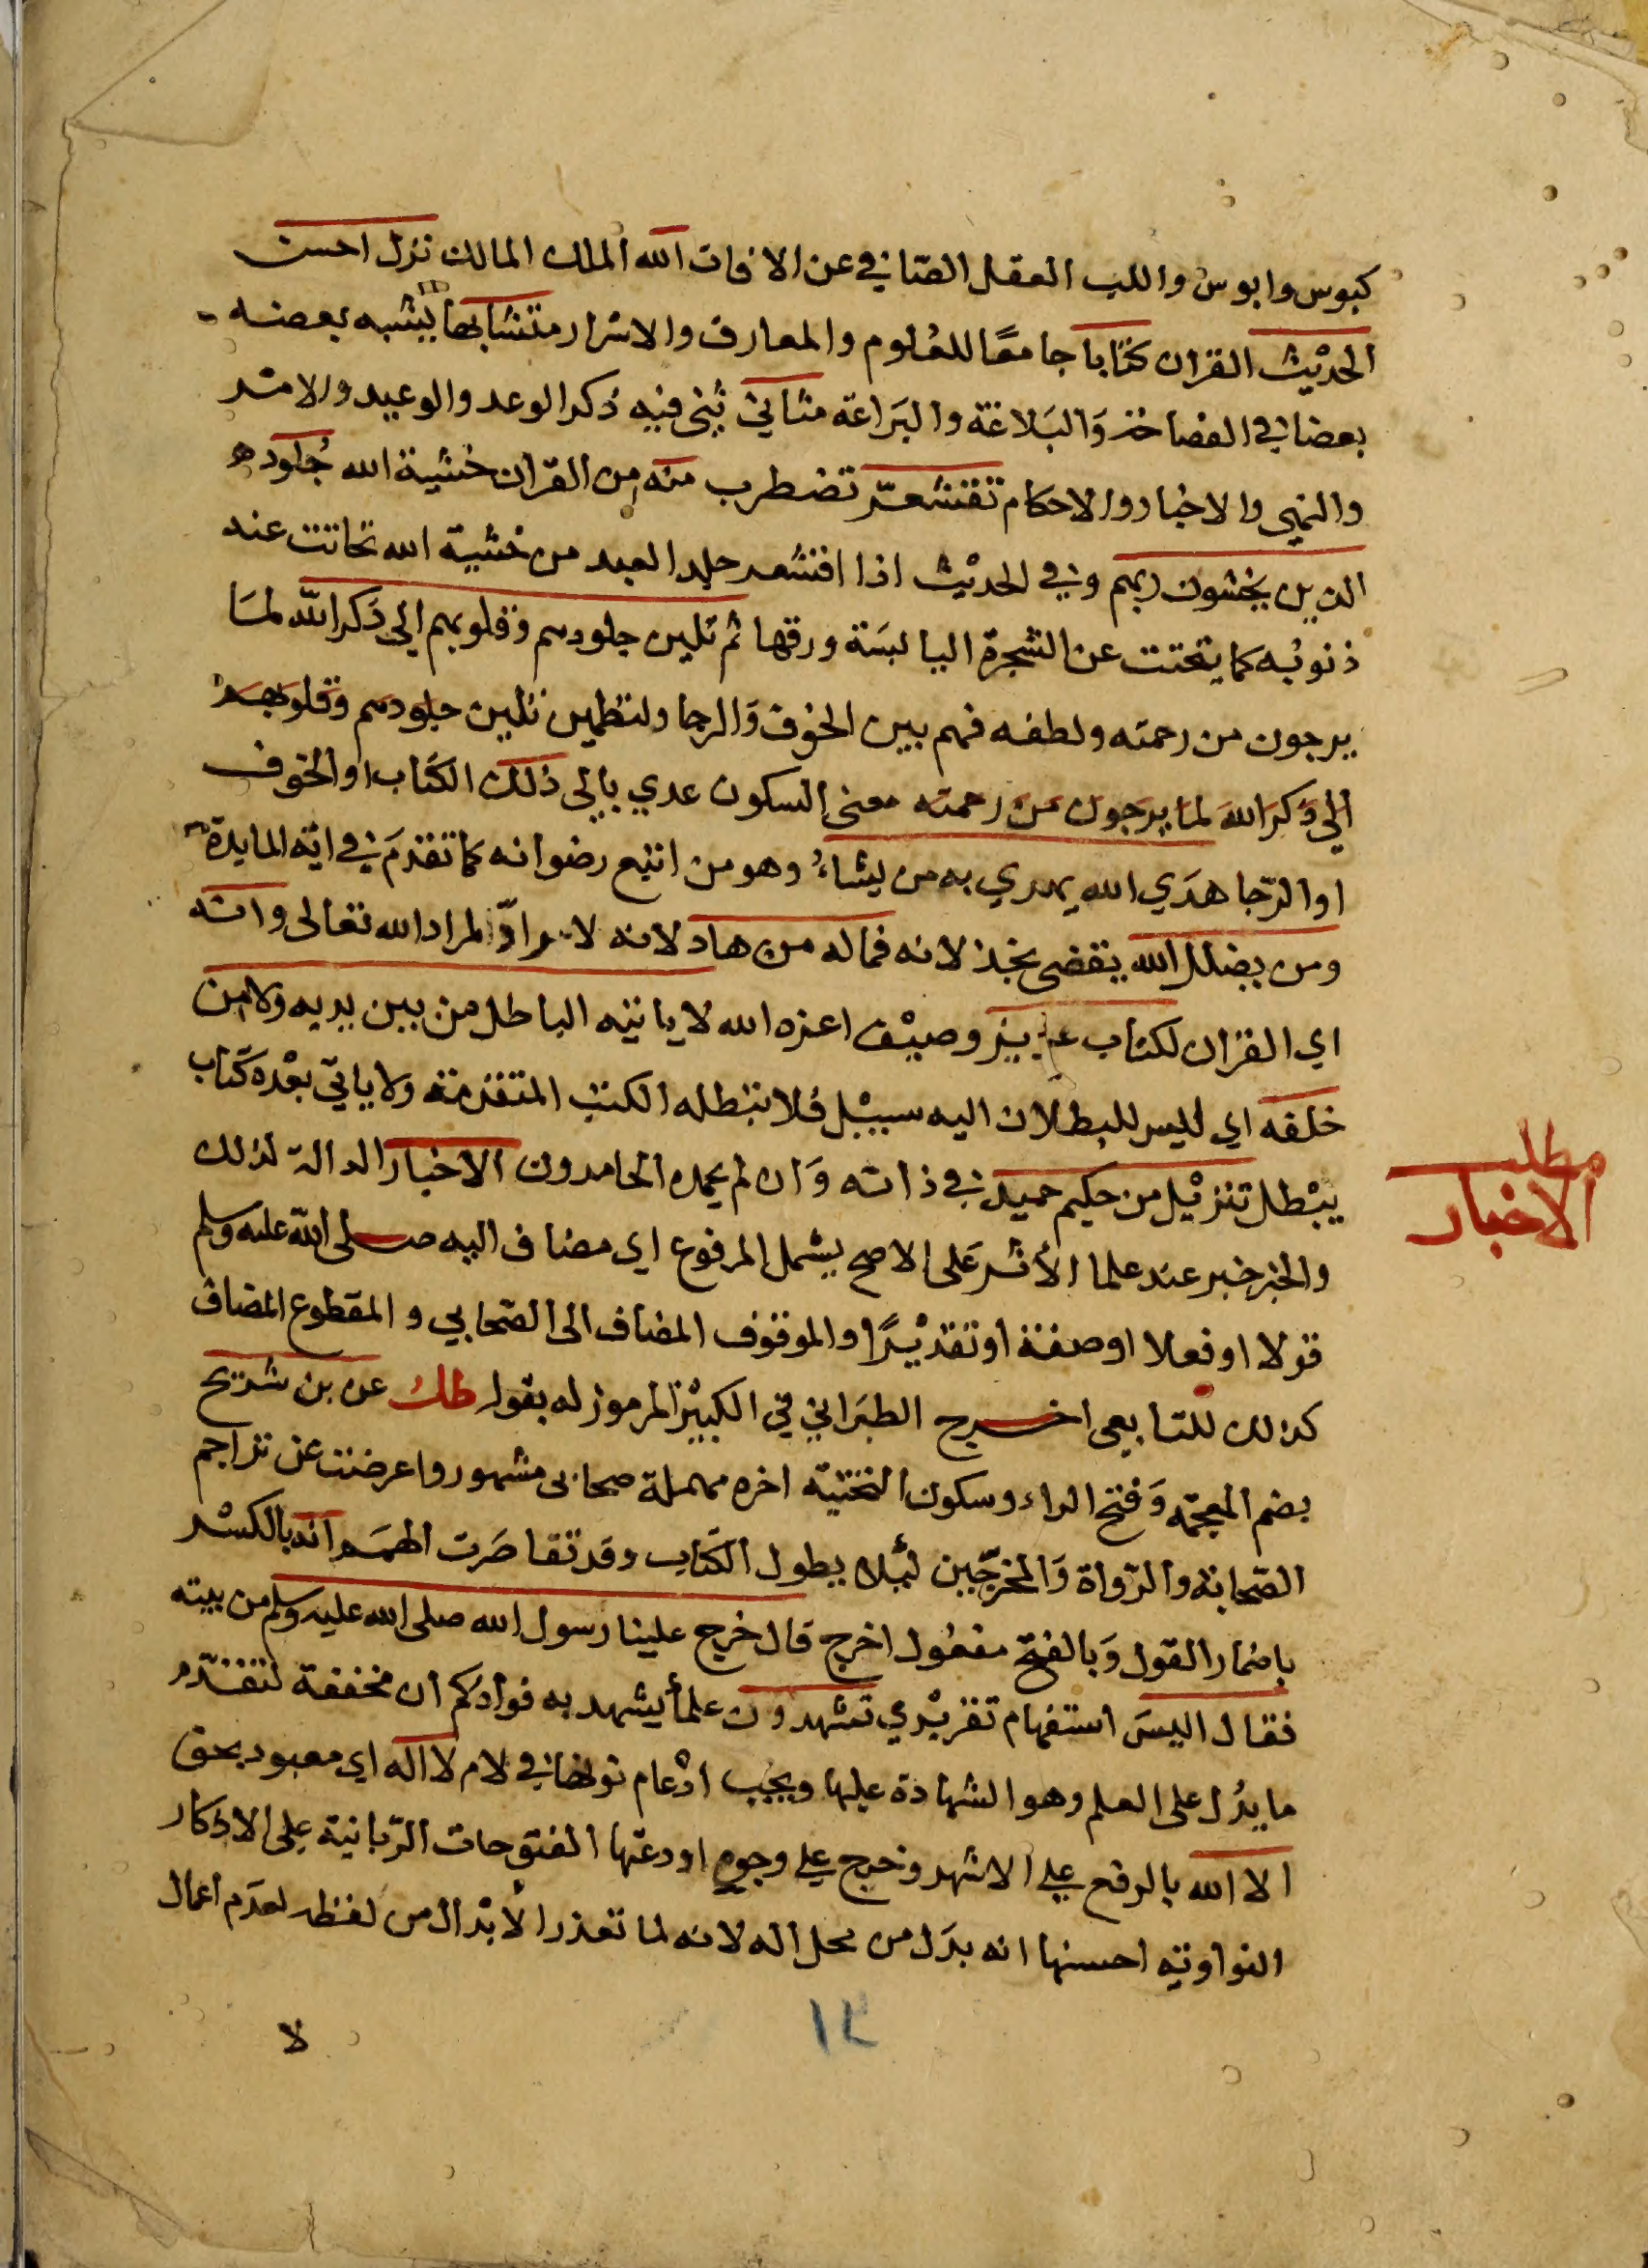 كبوس وابوس واللب العقل الصافي عن الافات الله الملك المالك نزل احسن
الحديث القران كتابا جامعا للعلوم والمعارف والاسرار متشابها يشبه بعضه
بعضا في الفصاحة والبلاغة والبراعة مثاني ثني فيه ذكر الوعد والوعيد والامر
والنهي والاخبار والاحكام تقشعر تضطرب منه من القران خشية الله جلود
الذين يخشون ربهم وفي الحديث اذا اقشعر جلد العبد من خشية الله تحاتت عنه
ذنوبه كما يتحتت عن الشجرة اليابسة ورقها ثم تلين جلودهم وقلوبهم الى ذكر الله لما
يرجون من رحمته ولطفه فهم بين الخوف والرجا ولتطمين تلين جلودهم وقلوبهم
الى ذكر الله لما يرجون من رحمته معنى السكون عدي بالى ذلك الكتاب او الخوف
او الرجا هدي الله يهدي به من يشاء وهو من اتبع رضوانه كما تقدم في اية المايدة
ومن يضلل الله يقضي بخذلانه فما له من هاد لانه لا راد لمراد الله تعالى وانه
اي القران لكتاب عزيز وصيف اعزه الله لا ياتيه الباطل من بين يديه ولا من
خلفه اي ليس للبطلان اليه سبيل فلا تبطله الكتب المتقدمة ولا ياتي بعده كتاب
يبطل تنزيل من حكيم حميد في ذاته وان لم يحمده الحامدون الاخبار الدالة لذلك
مطلب
الاخبار
والخبر خبر عند علما الأثر على الاصح يشمل المرفوع اي مضاف اليه صلى الله عليه وسلم
قولا او فعلا او صفة او تقديرًا والموقوف المضاف الى الصحابي والمقطوع المضاف
كذلك للتابعي اخرج الطبراني في الكبير المرموز له بقوله طك عن بن شريح
بضم المعجمة وفتح الراء وسكون التحتية اخره مهملة صحابي مشهور واعرضت عن تراجم
الصحابة والرواة والمخرجين لئلا يطول الكتاب وقد تقاصرت الهمم انه بالكسر
باضمار القول وبالفتح مفعول اخرج قال خرج علينا رسول الله صلى الله عليه وسلم من بيته
فقال اليس استفهام تقريري تشهدون علما يشهد به فوادكم ان مخففة لتقدم
ما يدل على العلم وهو الشهادة عليها ويجب ادغام نونها في لام لا اله اي معبود بحق
الا الله بالرفع على الاشهر وخرج على وجوه اودعتها الفتوحات الربانية على الاذكار
النواوية احسنها انه بدل من محل اله لانه لما تعذر الأبدال من لفظه لعدم اعمال
لا
١٢